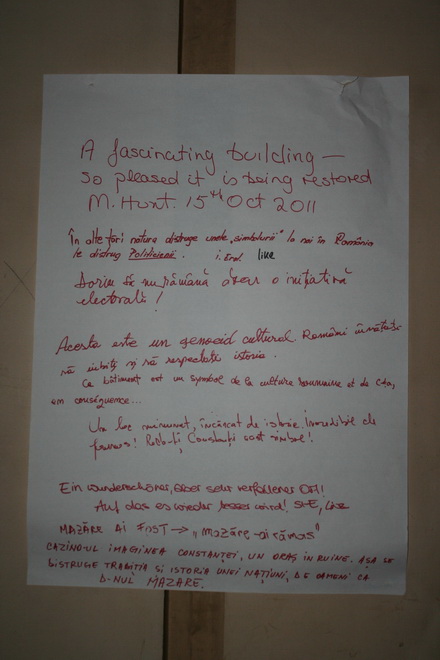 A fascinating building —
so pleased it is being restored
M. Hunt. 15th Oct 2011
În alte țări natura distruge unele "simboluri" la noi în România
le distrug Politicienii.
Dorim să nu rămână doar o inițiativă
electorală!
Acesta este un genocid cultural Români învățați
să iubiți și să respectați istoria.
Ce bâtiment est un symbol de la culture roumaine et de Cta,
en conséquence...
Un loc minunat, încărcat de istorie. Incredibil de
frumos! Constanți simbol!
Ein wunderschöner, aber sehr verfallener Ort!
Auf das es wieder besser wird!
MAZĂRE AI FOST → "Mazăre-ai rămas"
CAZINOUL IMAGINEA CONSTANȚEI, UN ORAȘ IN RUINE. AȘA SE
DISTRUGE TRADIȚIA SI ISTORIA UNEI NAȚIUNI, DE OAMENI CA
D-NUL MAZARE.